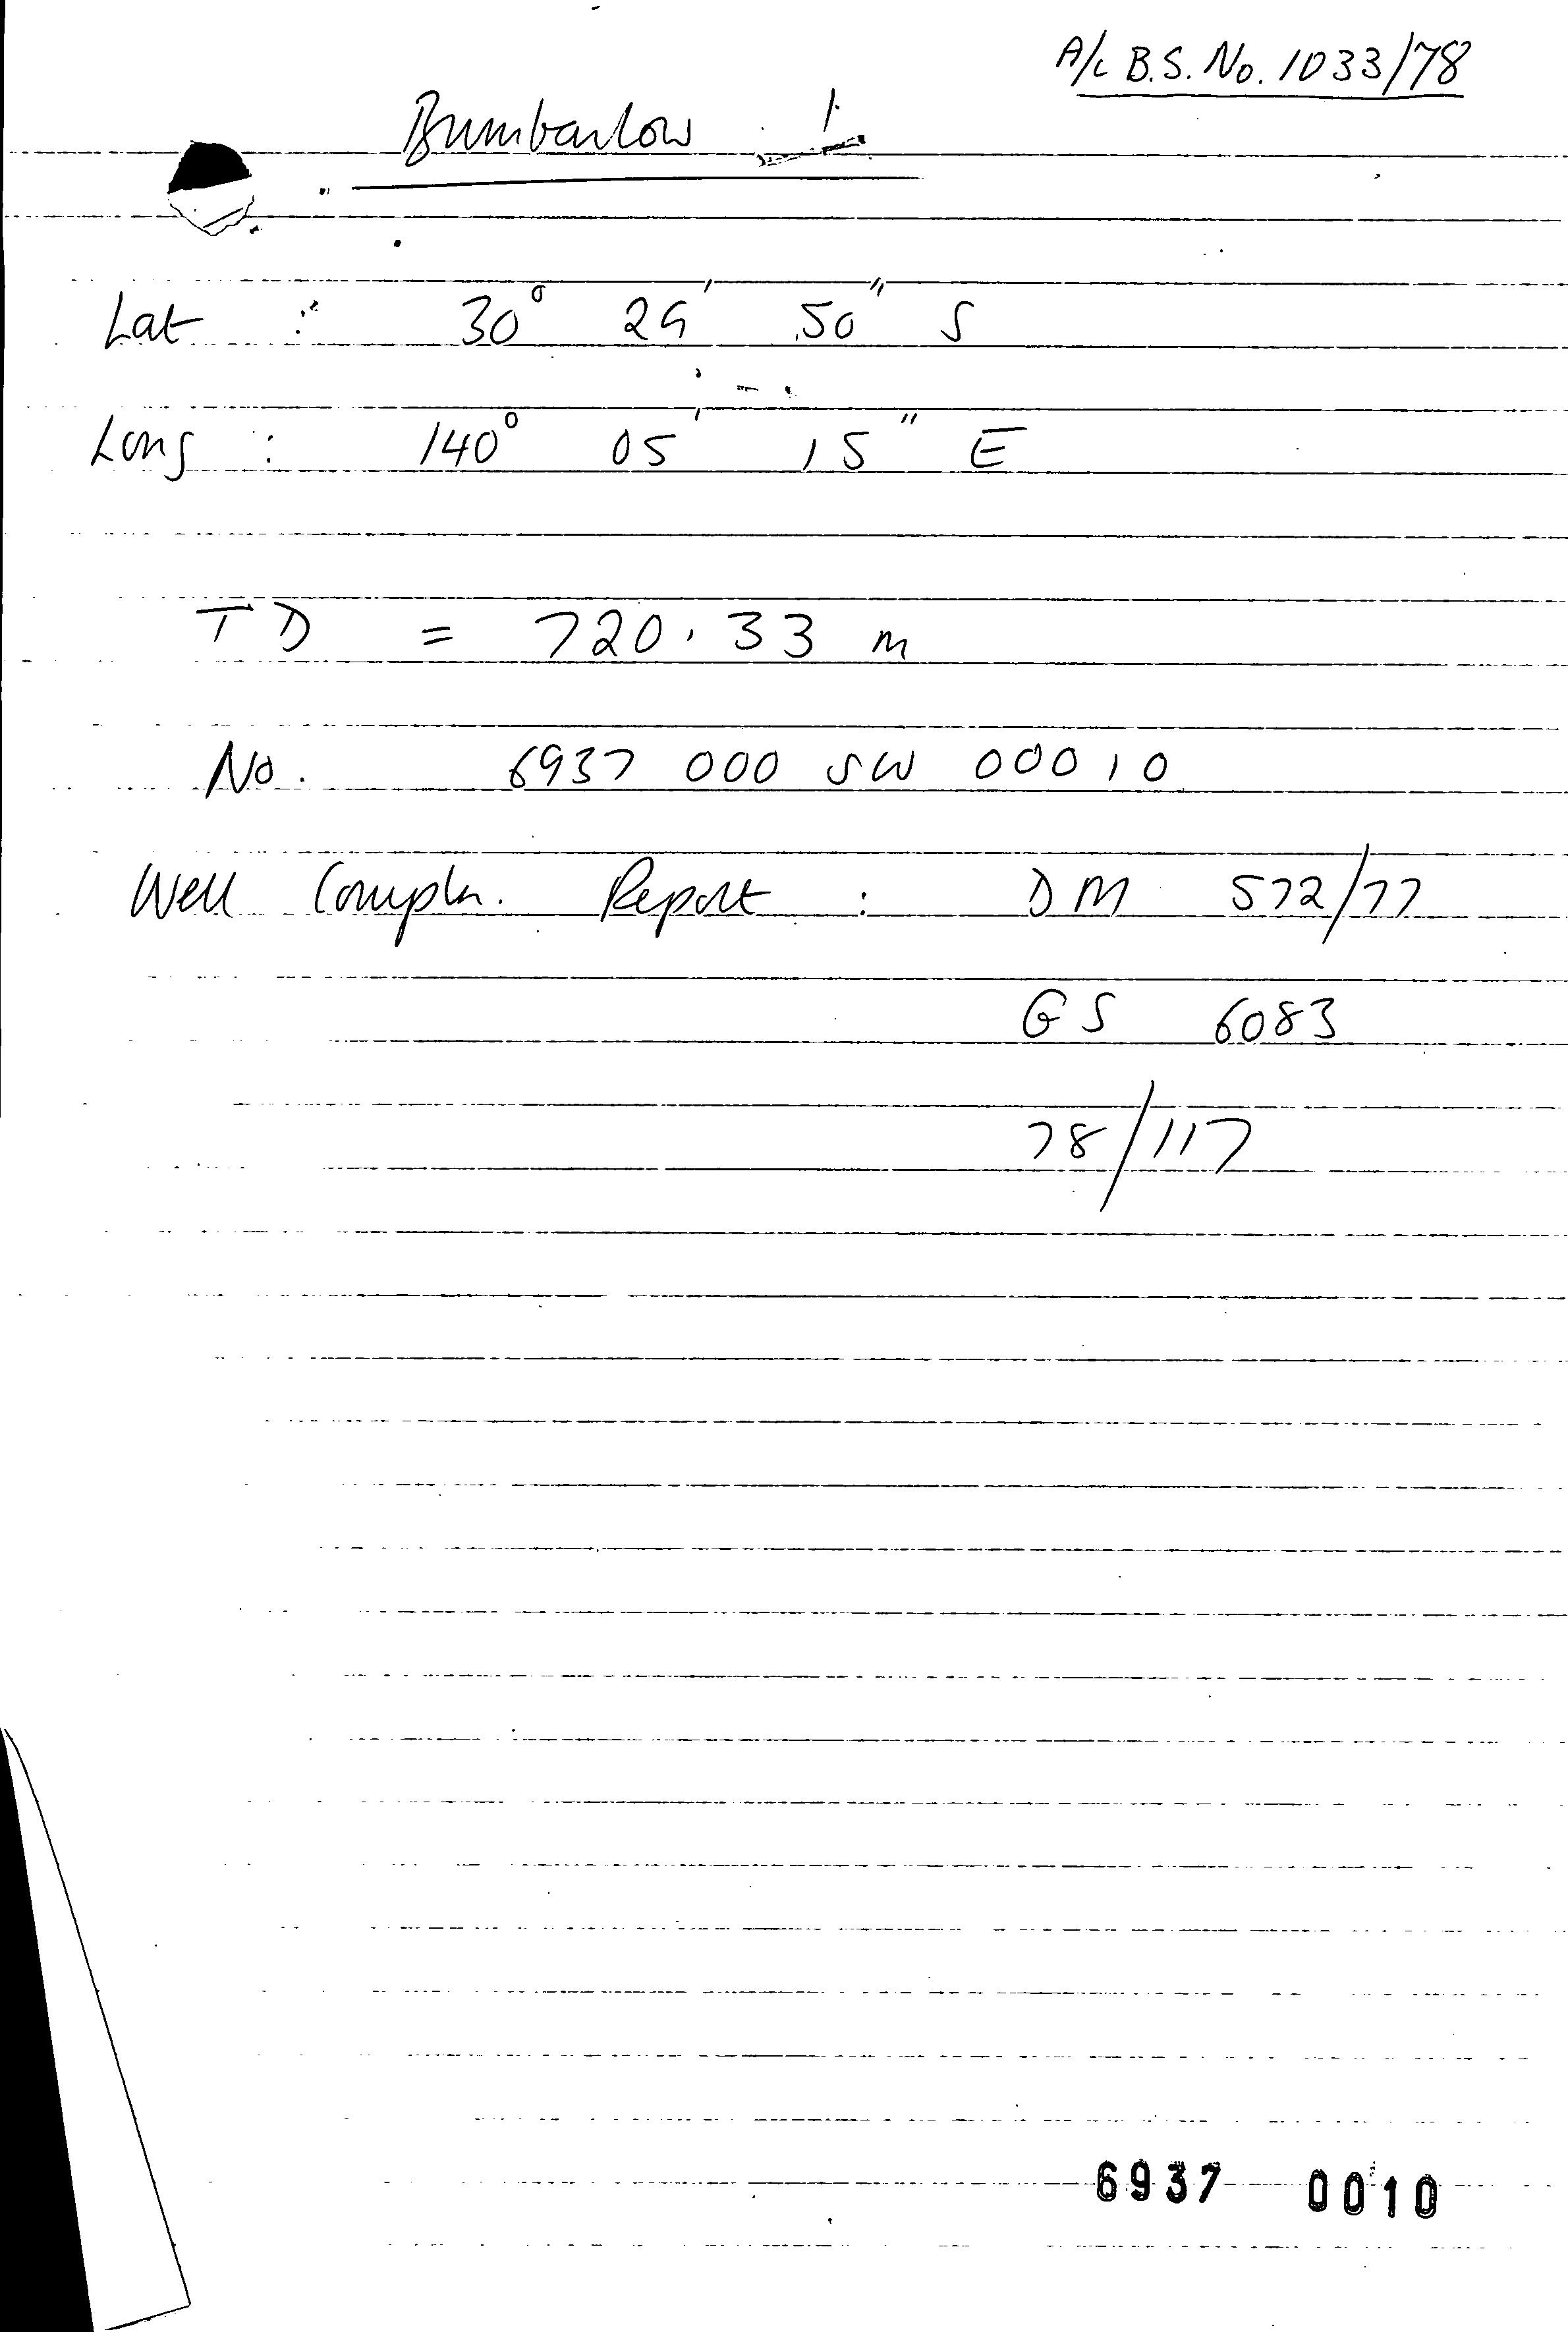 A/c B.S. No. 1033/78
Bumbarlow 1
Lat : 30° 29' 50" S
Long : 140° 05' 15" E
TD = 720.33 m
No. 6937 000 SW 00010
Well Compln. Report : DM 572/77
GS 6083
78/117
6937 0010